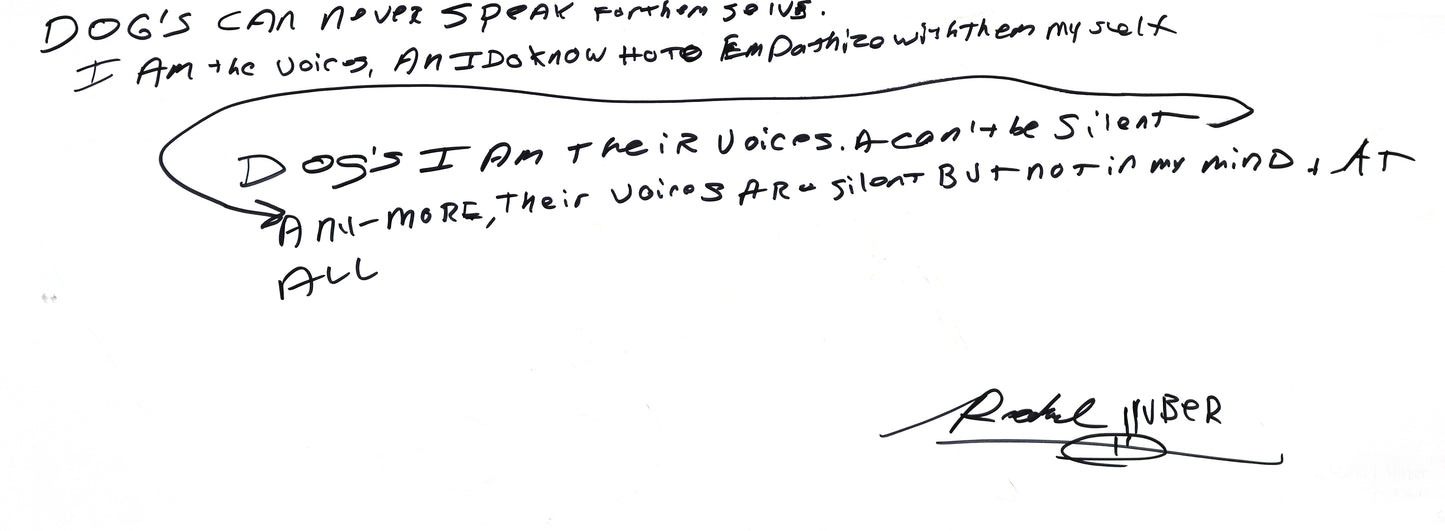 DOG'S CAN NEVER SPEAK Forthem selvs.
I AM the Voices, AN I DO KNOW HOTO EMPathize with them my self
DOG'S I AM THeiR Voices. A can't be Silent
ANY-MORE, Their Voices ARe silent BUT not in my minD, AT
ALL
HUBER